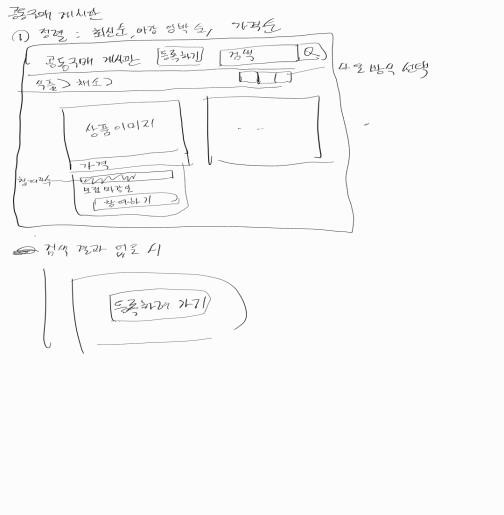 공구매 게시판
① 정렬 : 최신순, 마감 임박 순, 가격순
공동구매 게시판 등록하기 검색
식품 > 채소 >
방식 선택
상품 이미지
가격
참여하기
검색 결과 없을 시
등록하러 가기